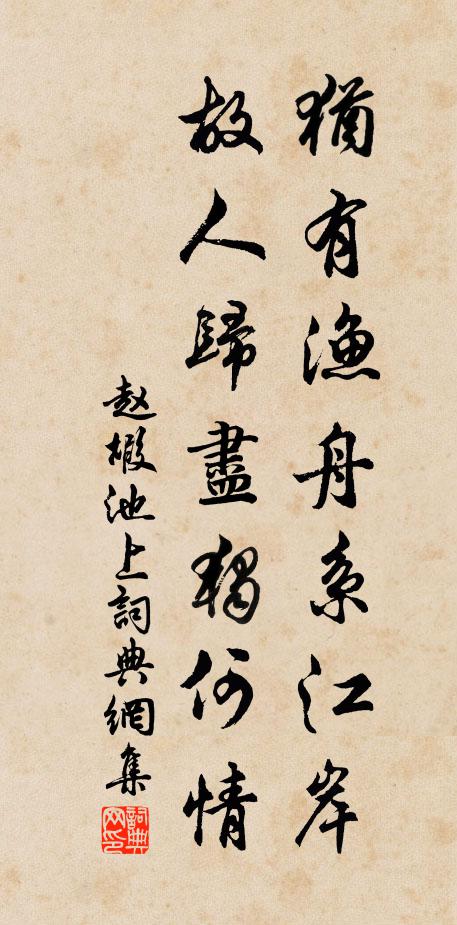 猶有漁舟系江岸
故人歸盡獨何情
赵嘏池上詞典網集
詞典网印